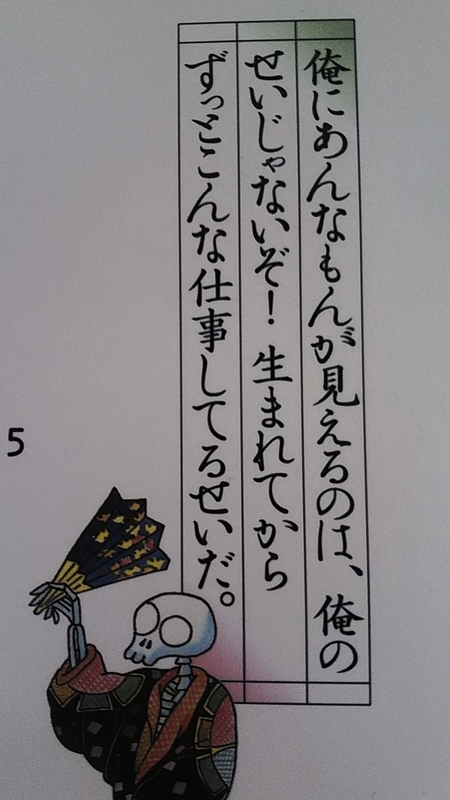 俺にあんなもんが見えるのは、俺の
せいじゃないぞ！生まれてから
ずっとこんな仕事してるせいだ。
5